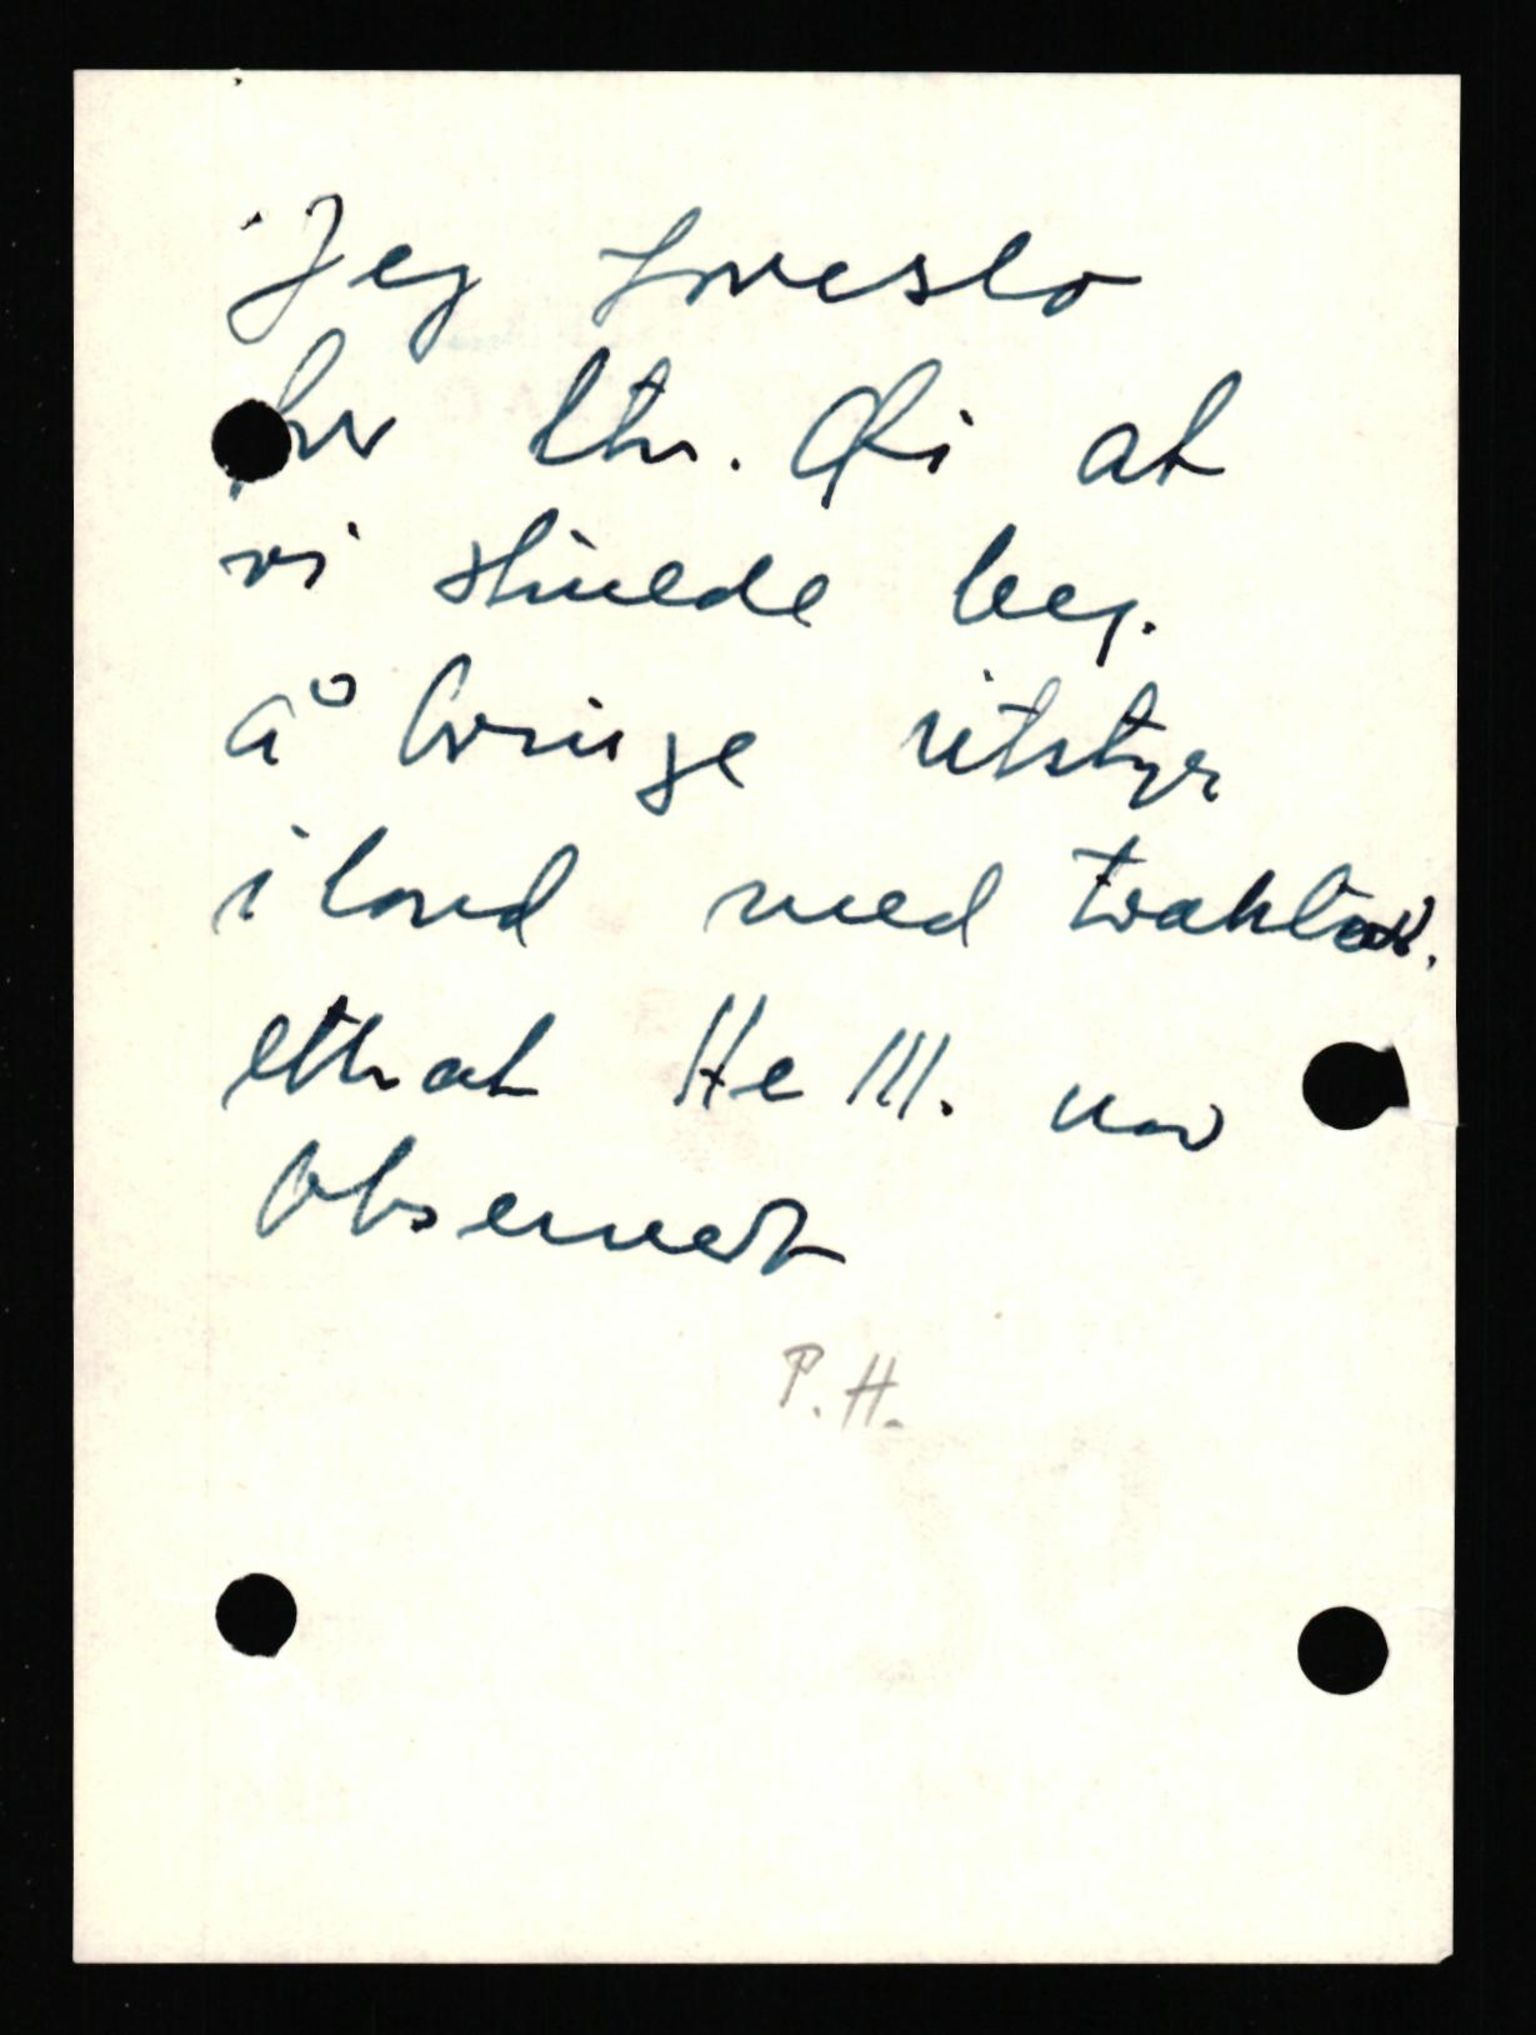 Jeg foreslo
for ltn. Øi at
vi skulde beg.
å bringe utstyr
iland med traktor.
etterat He 111. var
observert
P.H.